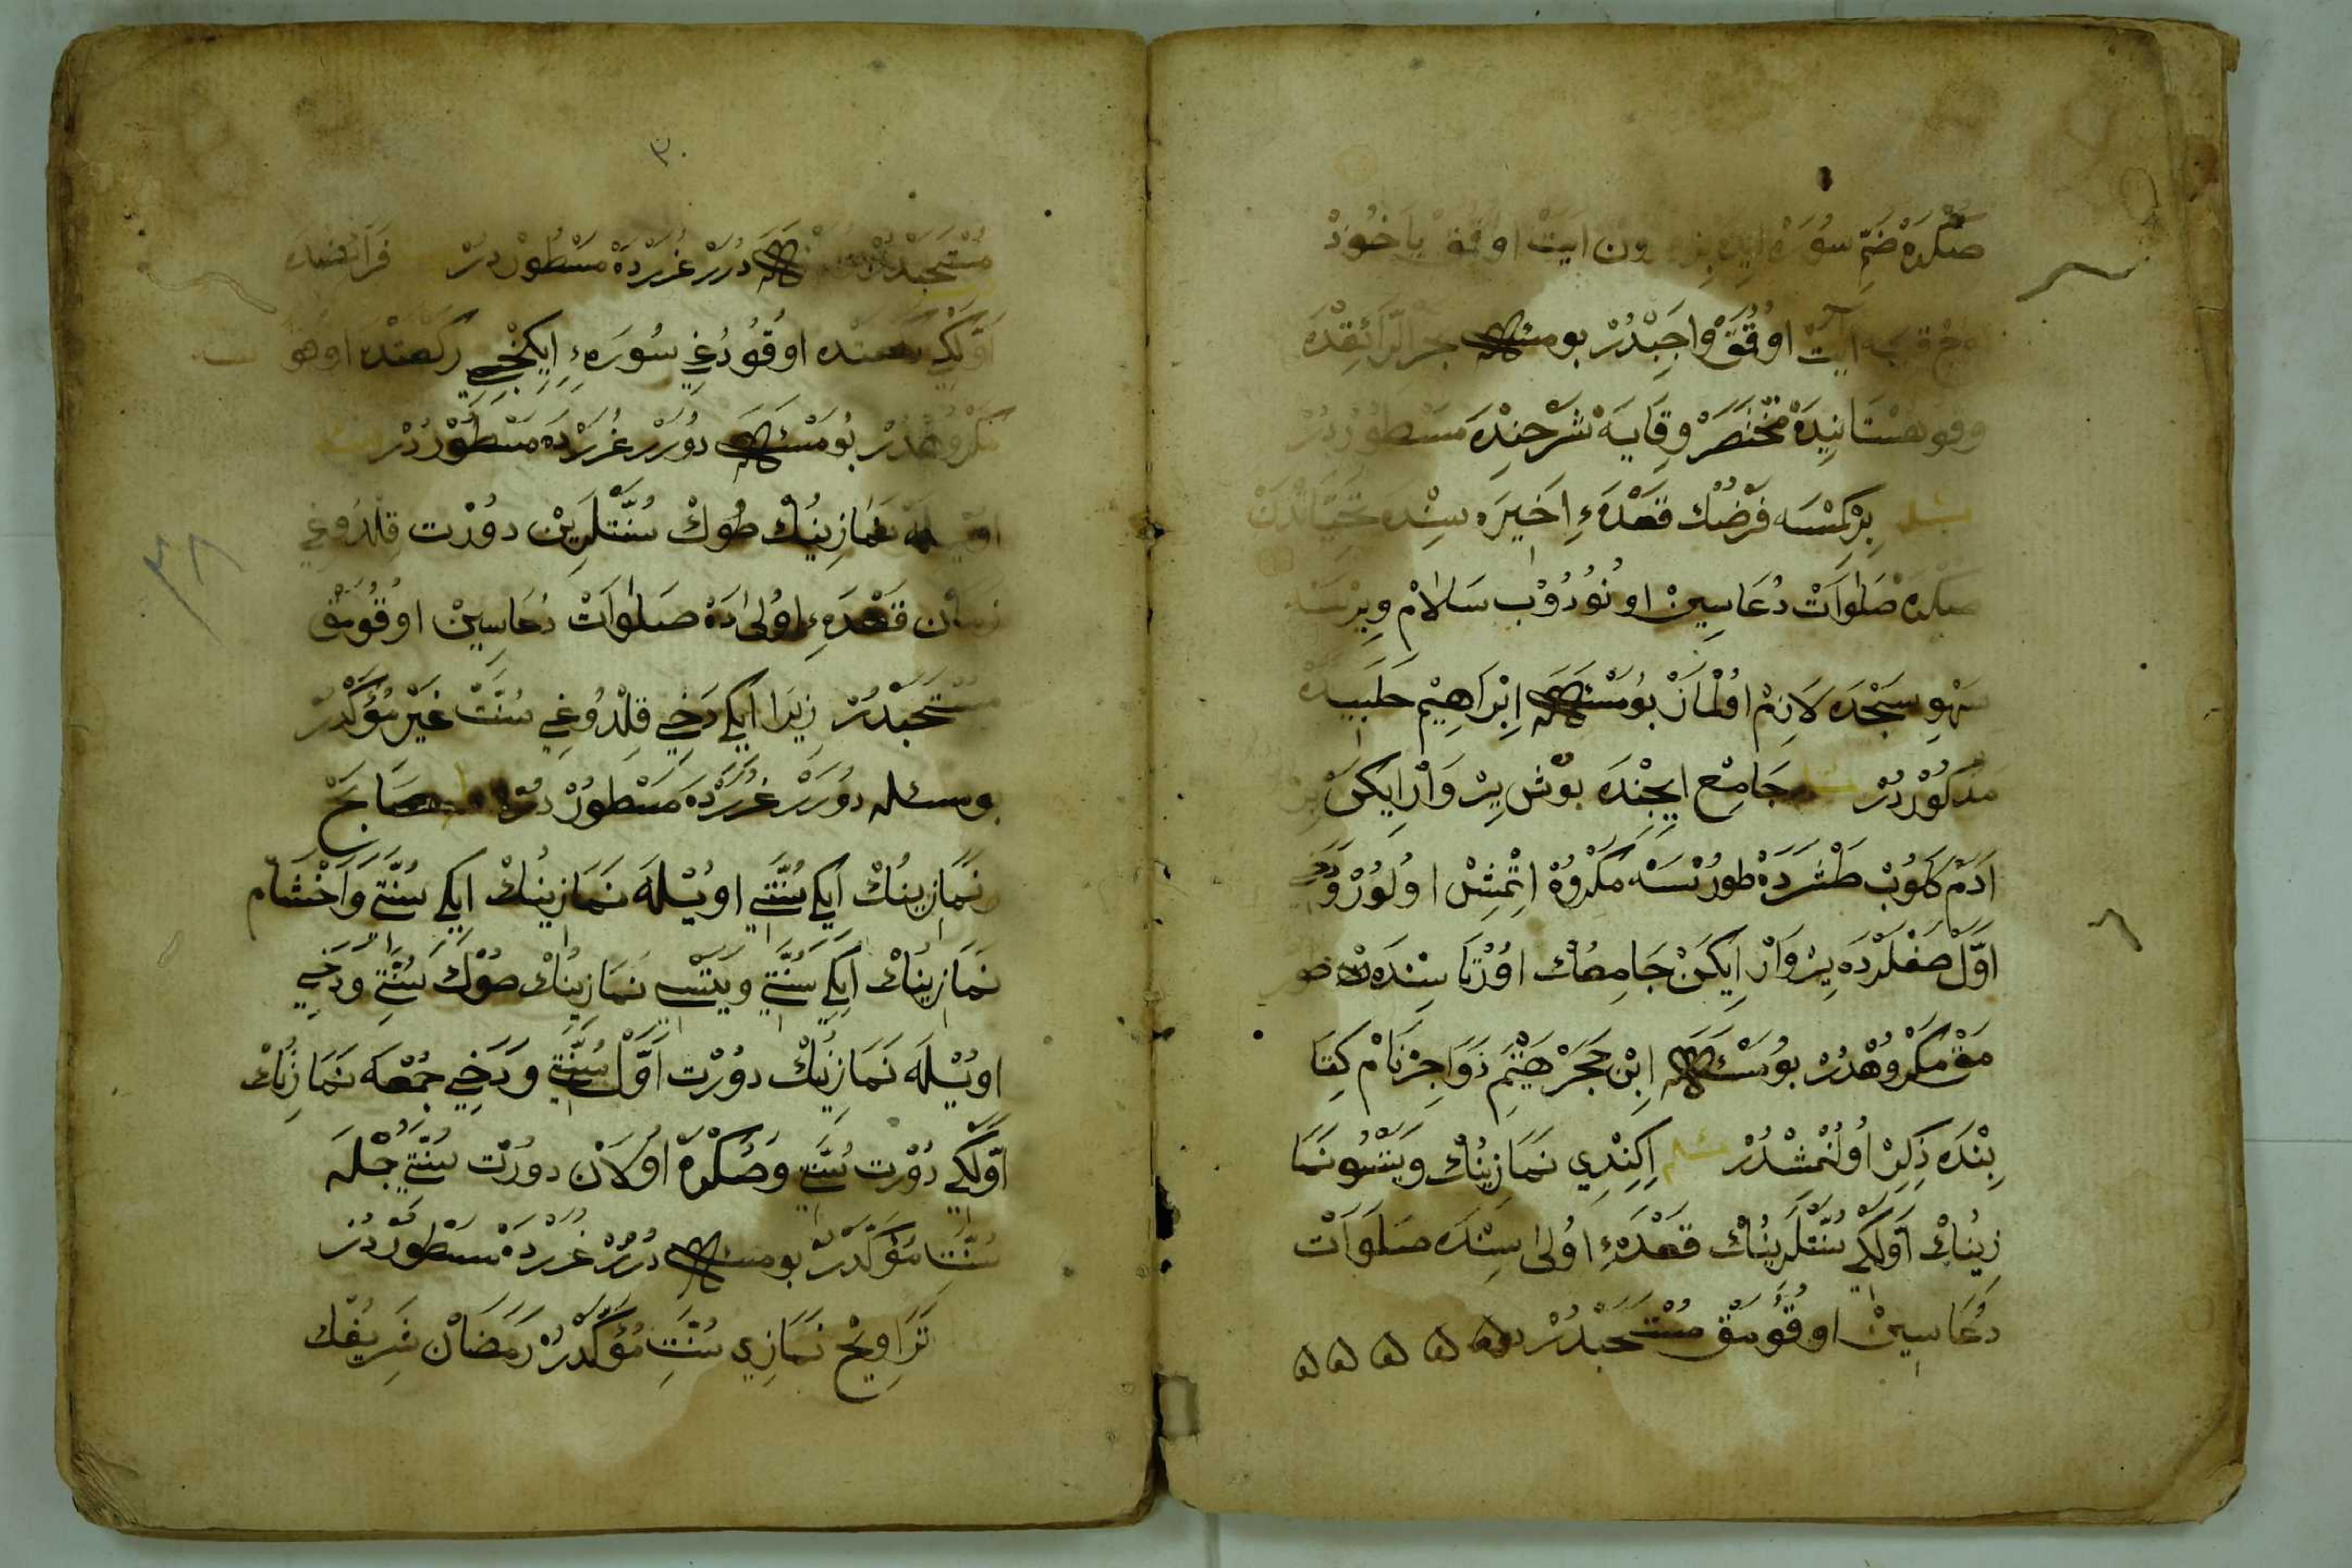 صكره ضم سوره ايله اون ايت اوقمق ياخود
ايت اوقمق واجبدر بو مسئله بحر الرائقده
وقهستانيده مختصر وقايه شرحنده مسطوردر
مسئله بر كمسه فرضك قعدهء اخيره سنده تحياتدن
صكره صلوات دعاسين اونودوب سلام ويرسه
سهو سجده لازم اولماز بو مسئله ابراهيم حلبيده
مذكوردر مسئله جامع ايچنده بوش ير وار ايكن بر
ادم كلوب طشرده طورسه مكروه اتمش اولور ودخي
اول صفلرده ير وار ايكن جامعك اورتا سنده طور
مق مكروهدر بو مسئله ابن حجر هيتم زواجر نام كتا
بنده ذكر اولنمشدر مسئله اكندي نمازينك ويتسو نما
زينك اولكي سنتلرينك قعدهء اولى سنده صلوات
دعاسين اوقومق مستحبدر
٣٠
مستحبدر بو مسئله درر غررده مسطوردر فرائضده
اولكي ركعتده اوقودغي سورهء ايكنجي ركعتده اوقو
مكروهدر بو مسئله درر غررده مسطوردر مسئله
اويله نمازينك صوك سنتلرين دورت قلدوغي
زمان قعدهء اولىده صلوات دعاسين اوقومق
مستحبدر زيرا ايكي دخي قلدوغي سنت غير مؤكددر
بو مسئله درر غررده مسطوردر صباح
نمازينك ايكي سنتي اويله نمازينك ايكي سنتي واخشام
نمازينك ايكي سنتي ويتسي نمازينك صوك سنتي ودخي
اويله نمازينك دورت اول سنتي ودخي جمعه نمازينك
اولكي دورت سنتي وصكره اولان دورت سنتي جمله
سنت مؤكددر بو مسئله درر غررده مسطوردر
تراويح نمازي سنت مؤكددر رمضان شريفك
٣٨